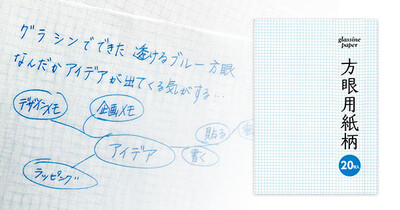 グラシンでできた 透けるブルー方眼
なんだかアイデアが出てくる気がする…
デザインメモ
企画メモ
アイデア
貼る
書く
ラッピング
glassine
paper
方眼用紙柄
20枚入